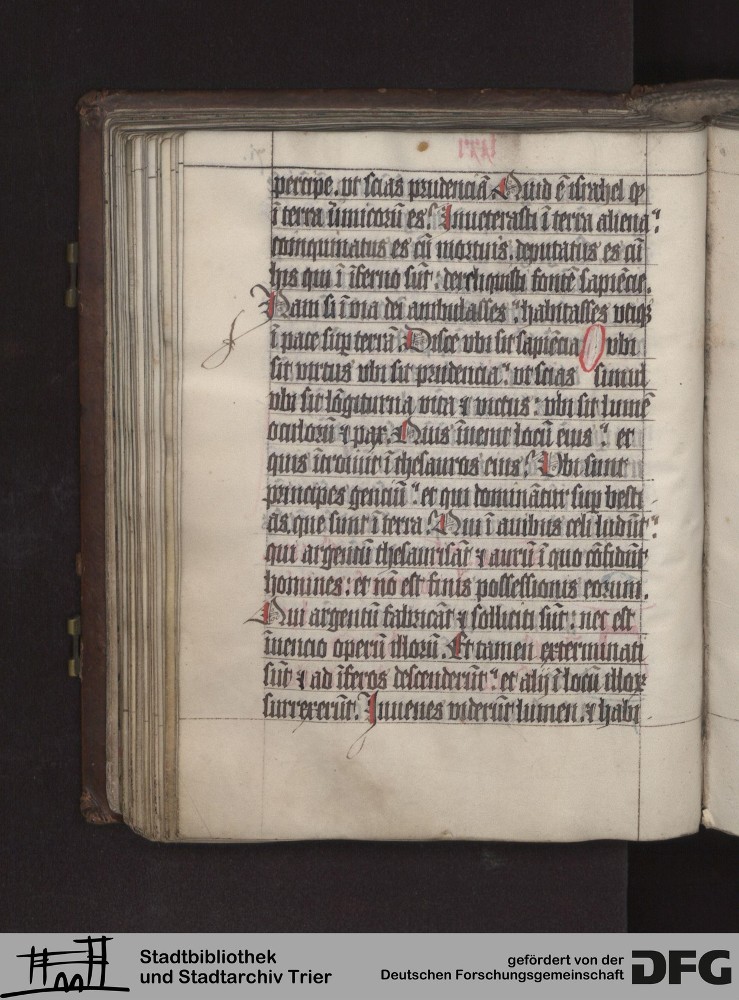 percipe. vt scias prudenciā Quid ē israhel qͥ
ī terra īimicorū es? Inueterasti ī terra aliena:
coinquinatus es cū mortuis. deputatus es cū
his qui ī īferno sūt: dereliquisti fontē sapiēcie.
Nam si ī via dei ambulasses: habitasses vtiqꝫ
ī pace suꝑ terrā. Disce vbi sit sapiēcia vbi
sit virtus vbi sit prudencia: vt scias simul
vbi sit lōgiturna vita ⁊ victus: vbi sit lumē
oculorū ⁊ pax. Quis īuenit locū eius: et
quis ītrouiit ī thesauros eius? Vbi sunt
principes genciū: et qui dominātur suꝑ besti
as que sunt ī terra? Qui ī auibus celi ludūt:
qui argentū thesaurisāt ⁊ aurū ī quo cōfidūt
homines: et nō est finis possessionis eorum.
Qui argentū fabricāt ⁊ solliciti sūt: nec est
īuencio operū illorū. Et tamen exterminati
sūt ⁊ ad īferos descenderūt: et alij ī locū illoꝝ
surrexerūt. Iuuenes viderūt lumen. ⁊ habi
Stadtbibliothek
und Stadtarchiv Trier
gefördert von der
Deutschen Forschungsgemeinschaft
DFG